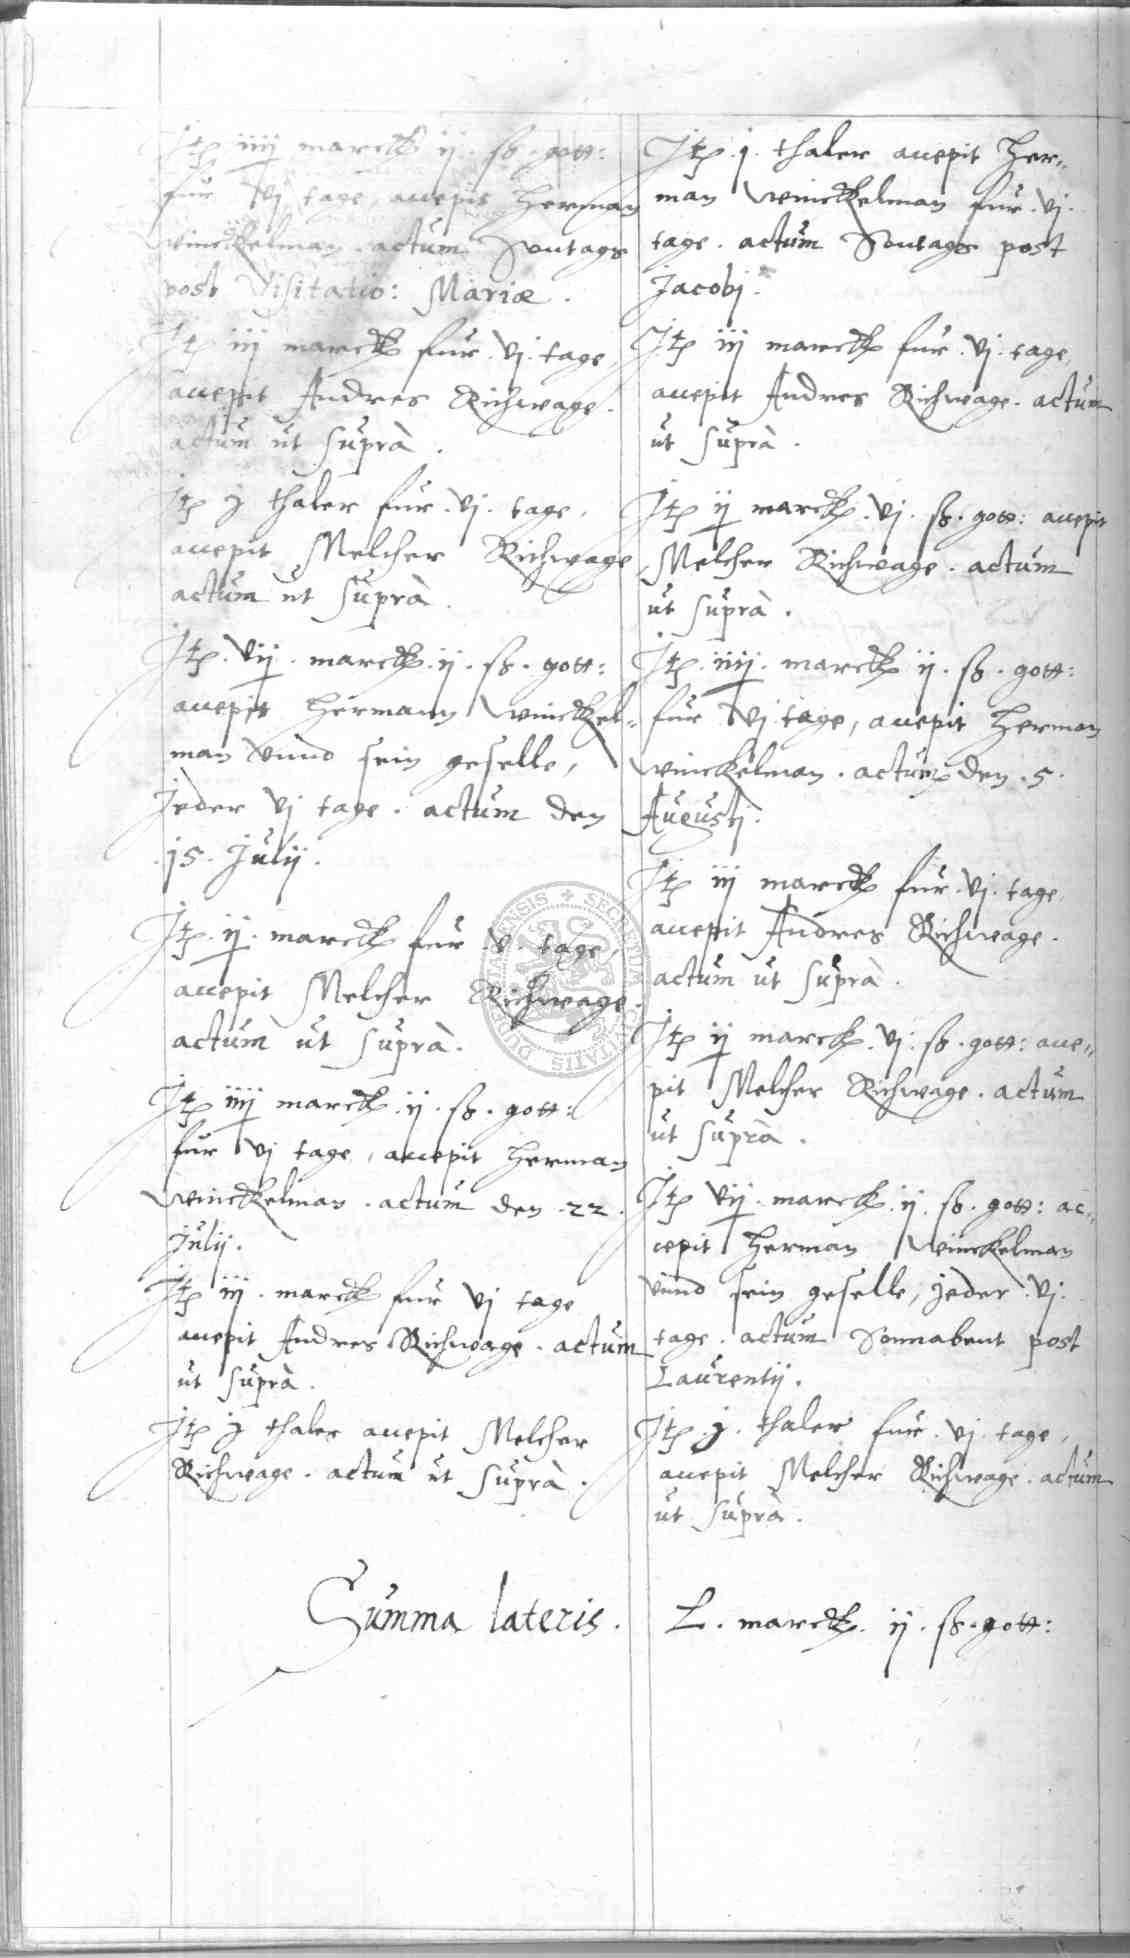 Jtē iiij marck ij. ß. gott:
fur vj tage accepit Herman
Winckelman. actum Sontags
post Visitatio: Mariæ.
Jtē iij marck fur. vj. tage,
accepit Andres Richwage.
actum ut suprà.
Jtē j thaler fur. vj. tage,
accepit Melcher Richwage
actum ut suprà.
Jtē. vij. marck. ij. ß. gott:
accepit Hermann Winckel-
man vnnd sein geselle,
Jeder vj tage. actum den
.15. Julij.
Jtē. ij. marck fur. v. tage,
accepit Melcher Richwage.
actum ut suprà.
Jtē iiij marck. ij. ß. gott:
fur vj tage, accepit Herman
Winckelman. actum den .22.
Julij.
Jtē iij. marck fur vj tage
accepit Andres Richwage. actum
ut suprà.
Jtē j thaler accepit Melcher
Richwage. actum ut suprà.
Jtē. j. thaler accepit Her-
man Winckelman fur. vj.
tage. actum Sontags post
Jacobj.
Jtē iij marck fur. vj. tage,
accepit Andres Richwage. actum
ut suprà.
Jtē ij marck. vj. ß. gott: accepit
Melcher Richwage. actum
ut suprà.
Jtē. iiij. marck ij. ß. gott:
fur vj tage, accepit Herman
Winckelman. actum den .5.
Augustj.
Jtē iij marck fur. vj. tage
accepit Andres Richwage.
actum ut suprà.
Jtē ij marck. vj. ß. gott: acce-
pit Melcher Richwage. actum
ut suprà.
Jtē vij. marck. ij. ß. gott: ac-
cepit Herman Winckelman
vnnd sein geselle, jeder. vj.
tage. actum Sonnabent post
Laurentij.
Jtē. j. thaler fur. vj. tage,
accepit Melcher Richwage. actum
ut suprà.
Summa lateris. L. marck. ij. ß. gott:
SECRETUM CIVITATIS